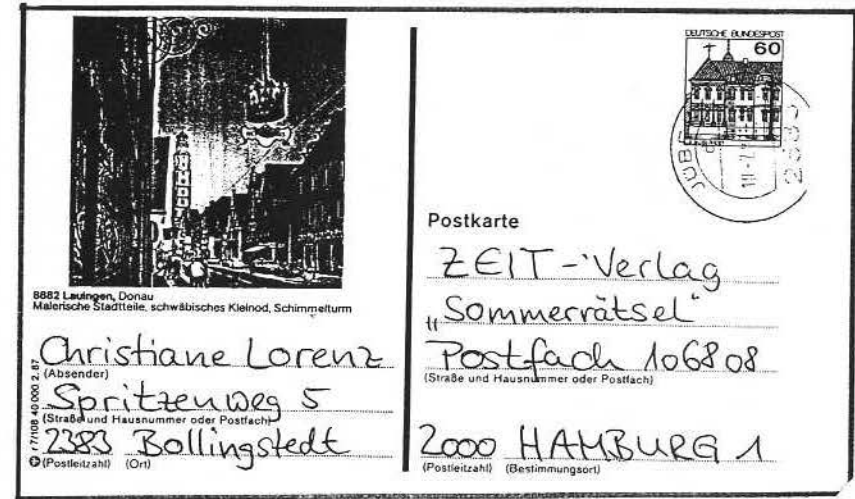 8882 Lauingen, Donau
Malerische Stadtteile, schwäbisches Kleinod, Schimmelturm
Christiane Lorenz
(Absender)
Spritzenweg 5
(Straße und Hausnummer oder Postfach)
2383 Bollingstedt
(Postleitzahl) (Ort)
r 7/108 40 000 2. 87
DEUTSCHE BUNDESPOST
60
Postkarte
ZEIT-Verlag
„Sommerrätsel“
Postfach 106808
(Straße und Hausnummer oder Postfach)
2000 HAMBURG 1
(Postleitzahl) (Bestimmungsort)